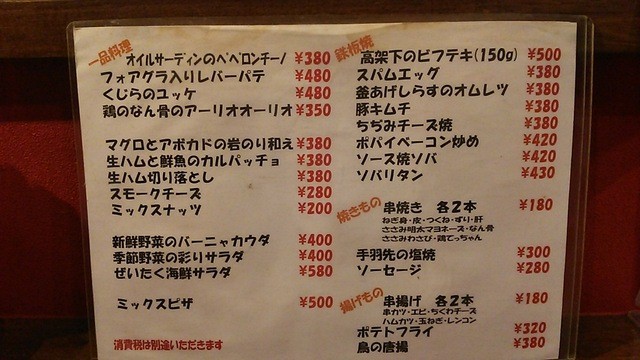 一品料理
オイルサーディンのペペロンチーノ ¥380
フォアグラ入りレバーパテ ¥480
くじらのユッケ ¥480
鶏のなん骨のアーリオオーリオ ¥350
マグロとアボカドの岩のり和え ¥380
生ハムと鮮魚のカルパッチョ ¥380
生ハム切り落とし ¥380
スモークチーズ ¥280
ミックスナッツ ¥200
新鮮野菜のバーニャカウダ ¥400
季節野菜の彩りサラダ ¥400
ぜいたく海鮮サラダ ¥580
ミックスピザ ¥500
消費税は別途いただきます
鉄板焼
高架下のビフテキ(150g) ¥500
スパムエッグ ¥380
釜あげしらすのオムレツ ¥380
豚キムチ ¥380
ちぢみチーズ焼 ¥380
ポパイベーコン炒め ¥420
ソース焼ソバ ¥420
ソバリタン ¥430
焼きもの
串焼き 各2本 ¥180
ねぎ身・皮・つくね・ずり・肝
ささみ明太マヨネーズ・なん骨
ささみわさび・鶏てっちゃん
手羽先の塩焼 ¥300
ソーセージ ¥280
揚げもの
串揚げ 各2本 ¥180
串カツ・エビ・ちくわチーズ
ハムカツ・玉ねぎ・レンコン
ポテトフライ ¥320
鳥の唐揚 ¥380